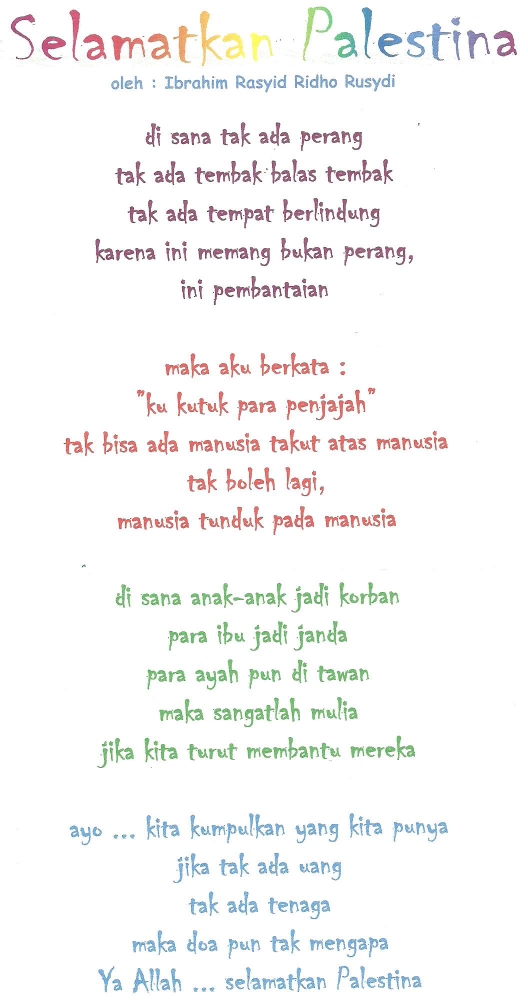 Selamatkan Palestina
oleh : Ibrahim Rasyid Ridho Rusydi
di sana tak ada perang
tak ada tembak balas tembak
tak ada tempat berlindung
karena ini memang bukan perang,
ini pembantaian
maka aku berkata :
"ku kutuk para penjajah"
tak bisa ada manusia takut atas manusia
tak boleh lagi,
manusia tunduk pada manusia
di sana anak-anak jadi korban
para ibu jadi janda
para ayah pun di tawan
maka sangatlah mulia
jika kita turut membantu mereka
ayo ... kita kumpulkan yang kita punya
jika tak ada uang
tak ada tenaga
maka doa pun tak mengapa
Ya Allah ... selamatkan Palestina